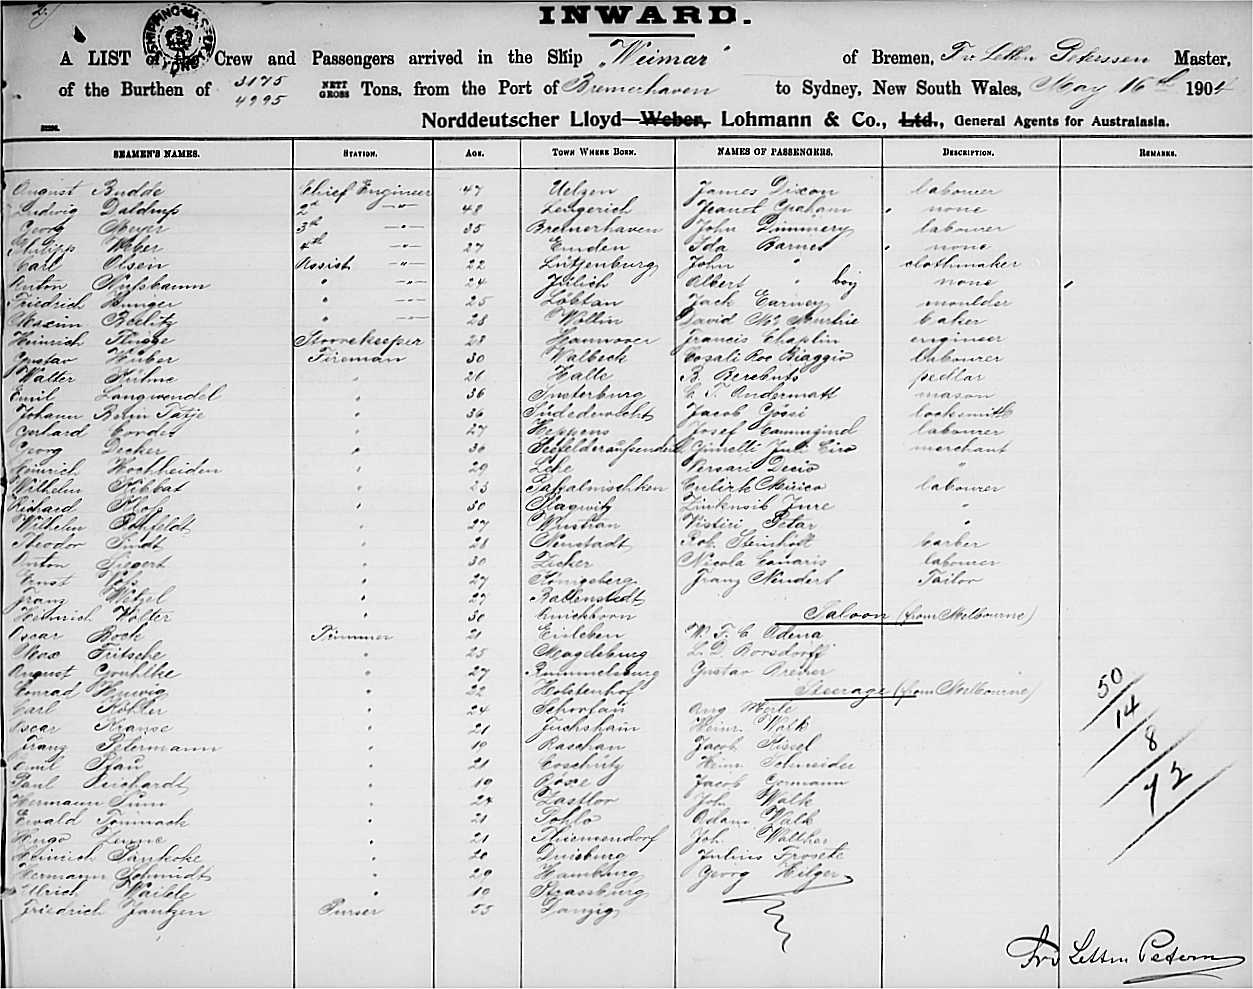 2.
INWARD.
A LIST of the Crew and Passengers arrived in the Ship "Weimar" of Bremen, Master,
of the Burthen of 3175 4995 NETT GROSS Tons, from the Port of Bremerhaven to Sydney, New South Wales, May 16th 1904
Norddeutscher Lloyd—Weber, Lohmann & Co., Ltd., General Agents for Australasia.
SEAMEN'S NAMES. STATION. AGE. TOWN WHERE BORN. NAMES OF PASSENGERS. DESCRIPTION. REMARKS.
August Budde Chief Engineer 47 Uelzen James Dixon labourer
Ludwig Daldrup 2d -"- 48 Lengerich Jeanot Graham none
Georg Meyer 3th -"- 35 Bremerhaven John labourer
Philipp Weber 4th -"- 27 Emden Ida Barnes none
Carl Olsen Assist. -"- 22 Lütjenburg John " clothmaker
Anton Nussbaum " -"- 24 Jülich Albert " boy none
Friedrich Bunger " -"- 25 Löbtau Jack moulder
Maxim Beelitz " -"- 28 Wollin David baker
Heinrich Kluge Storekeeper 28 Hannover Francis Chaplin engineer
Gustav Huber Fireman 30 Walbeck Casali Roc Biaggio labourer
Walter Kühne " 26 Halle B. pedlar
Emil Langwendel " 36 Insterburg Andermatt mason
Johann Tatje " 36 Jacob Gössi locksmith
Gerhard Cordes " 27 Heppens Josef labourer
Georg Decker " 30 Ginelli merchant
Heinrich Hochheiden " 29 Lehe Versari Decio "
Wilhelm Kibbat " 23 labourer
Richard " 30 Plagwitz Jure "
Wilhelm " 27 Wustrau Petar "
Theodor Lindt " 28 Neustadt Rob. barber
Anton Siegert " 30 Zicker Nicola Canaris labourer
Ernst " 27 Königsberg Franz Neudert Tailor
Franz Wetzel " 27 Ballenstedt
Heinrich Wolter " 30 Quickborn Saloon (from Melbourne)
Oscar Bock Trimmer 21 Eisleben W. F. C. Adena
Max Fritsche " 25 Magdeburg L. D. Borsdorff
August " 27 Rummelsburg Gustav Bremer
Conrad " 22 Holstenhof Steerage (from Melbourne)
Carl Köhler " 24 Schortau Aug. Merle
Oscar Krause " 21 Juchshain Heinr. Walk
Franz Petermann " 19 Raschau Jacob Kissel
Emil Rau " 21 Coschütz Heinr. Schneider
Paul Reichardt " 19 Jacob Gormann
Hermann " 24 Zastlov Joh. Walk
Ewald " 21 Pohla Adam Walk
Hugo " 21 Thiemendorf Joh. Walther
Heinrich " 20 Duisburg Julius
Hermann Schmidt " 29 Hamburg Georg Hilger
Ulrich Waible " 19 Strassburg
Friedrich Jantzen Purser 55 Danzig
50
14
8
72